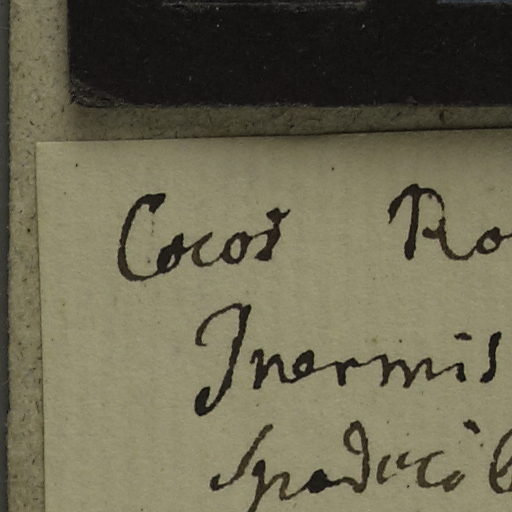 Cocos Ro
Inermis
spadicib